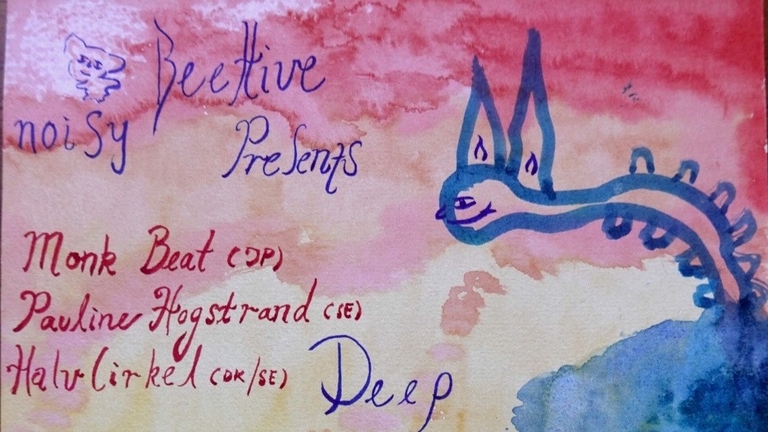 noisy BeeHive
Presents
Monk Beat (JP)
Pauline Hogstrand (SE)
Halv Cirkel (DK/SE)
Deep